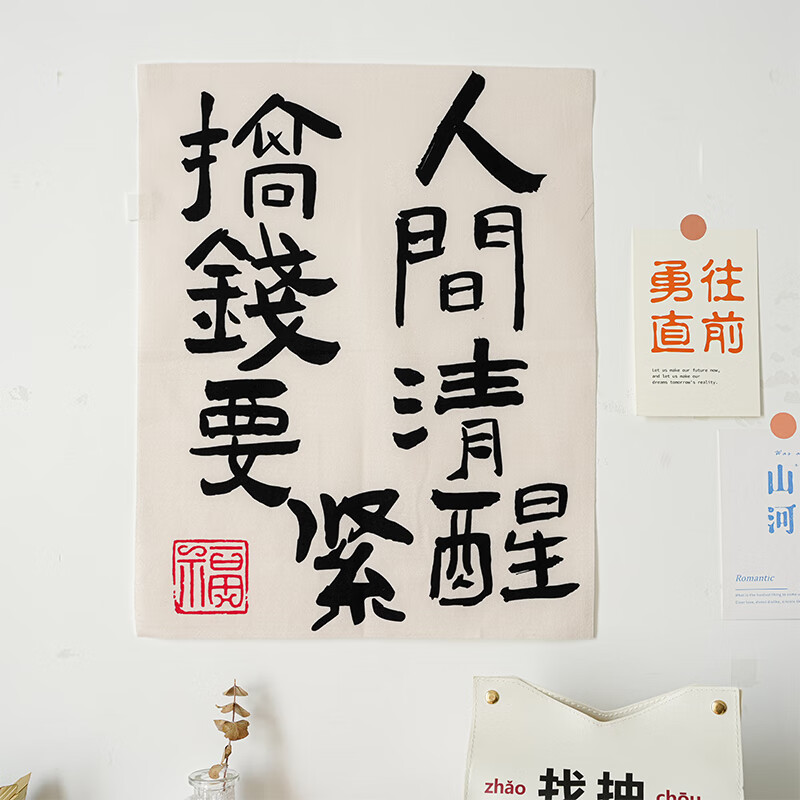 人間清醒
搞錢要緊
福
勇往
直前
Let us make our future now,
and let us make our
dreams tomorrow's reality.
山河
Romantic
zhǎo 找抽 chōu